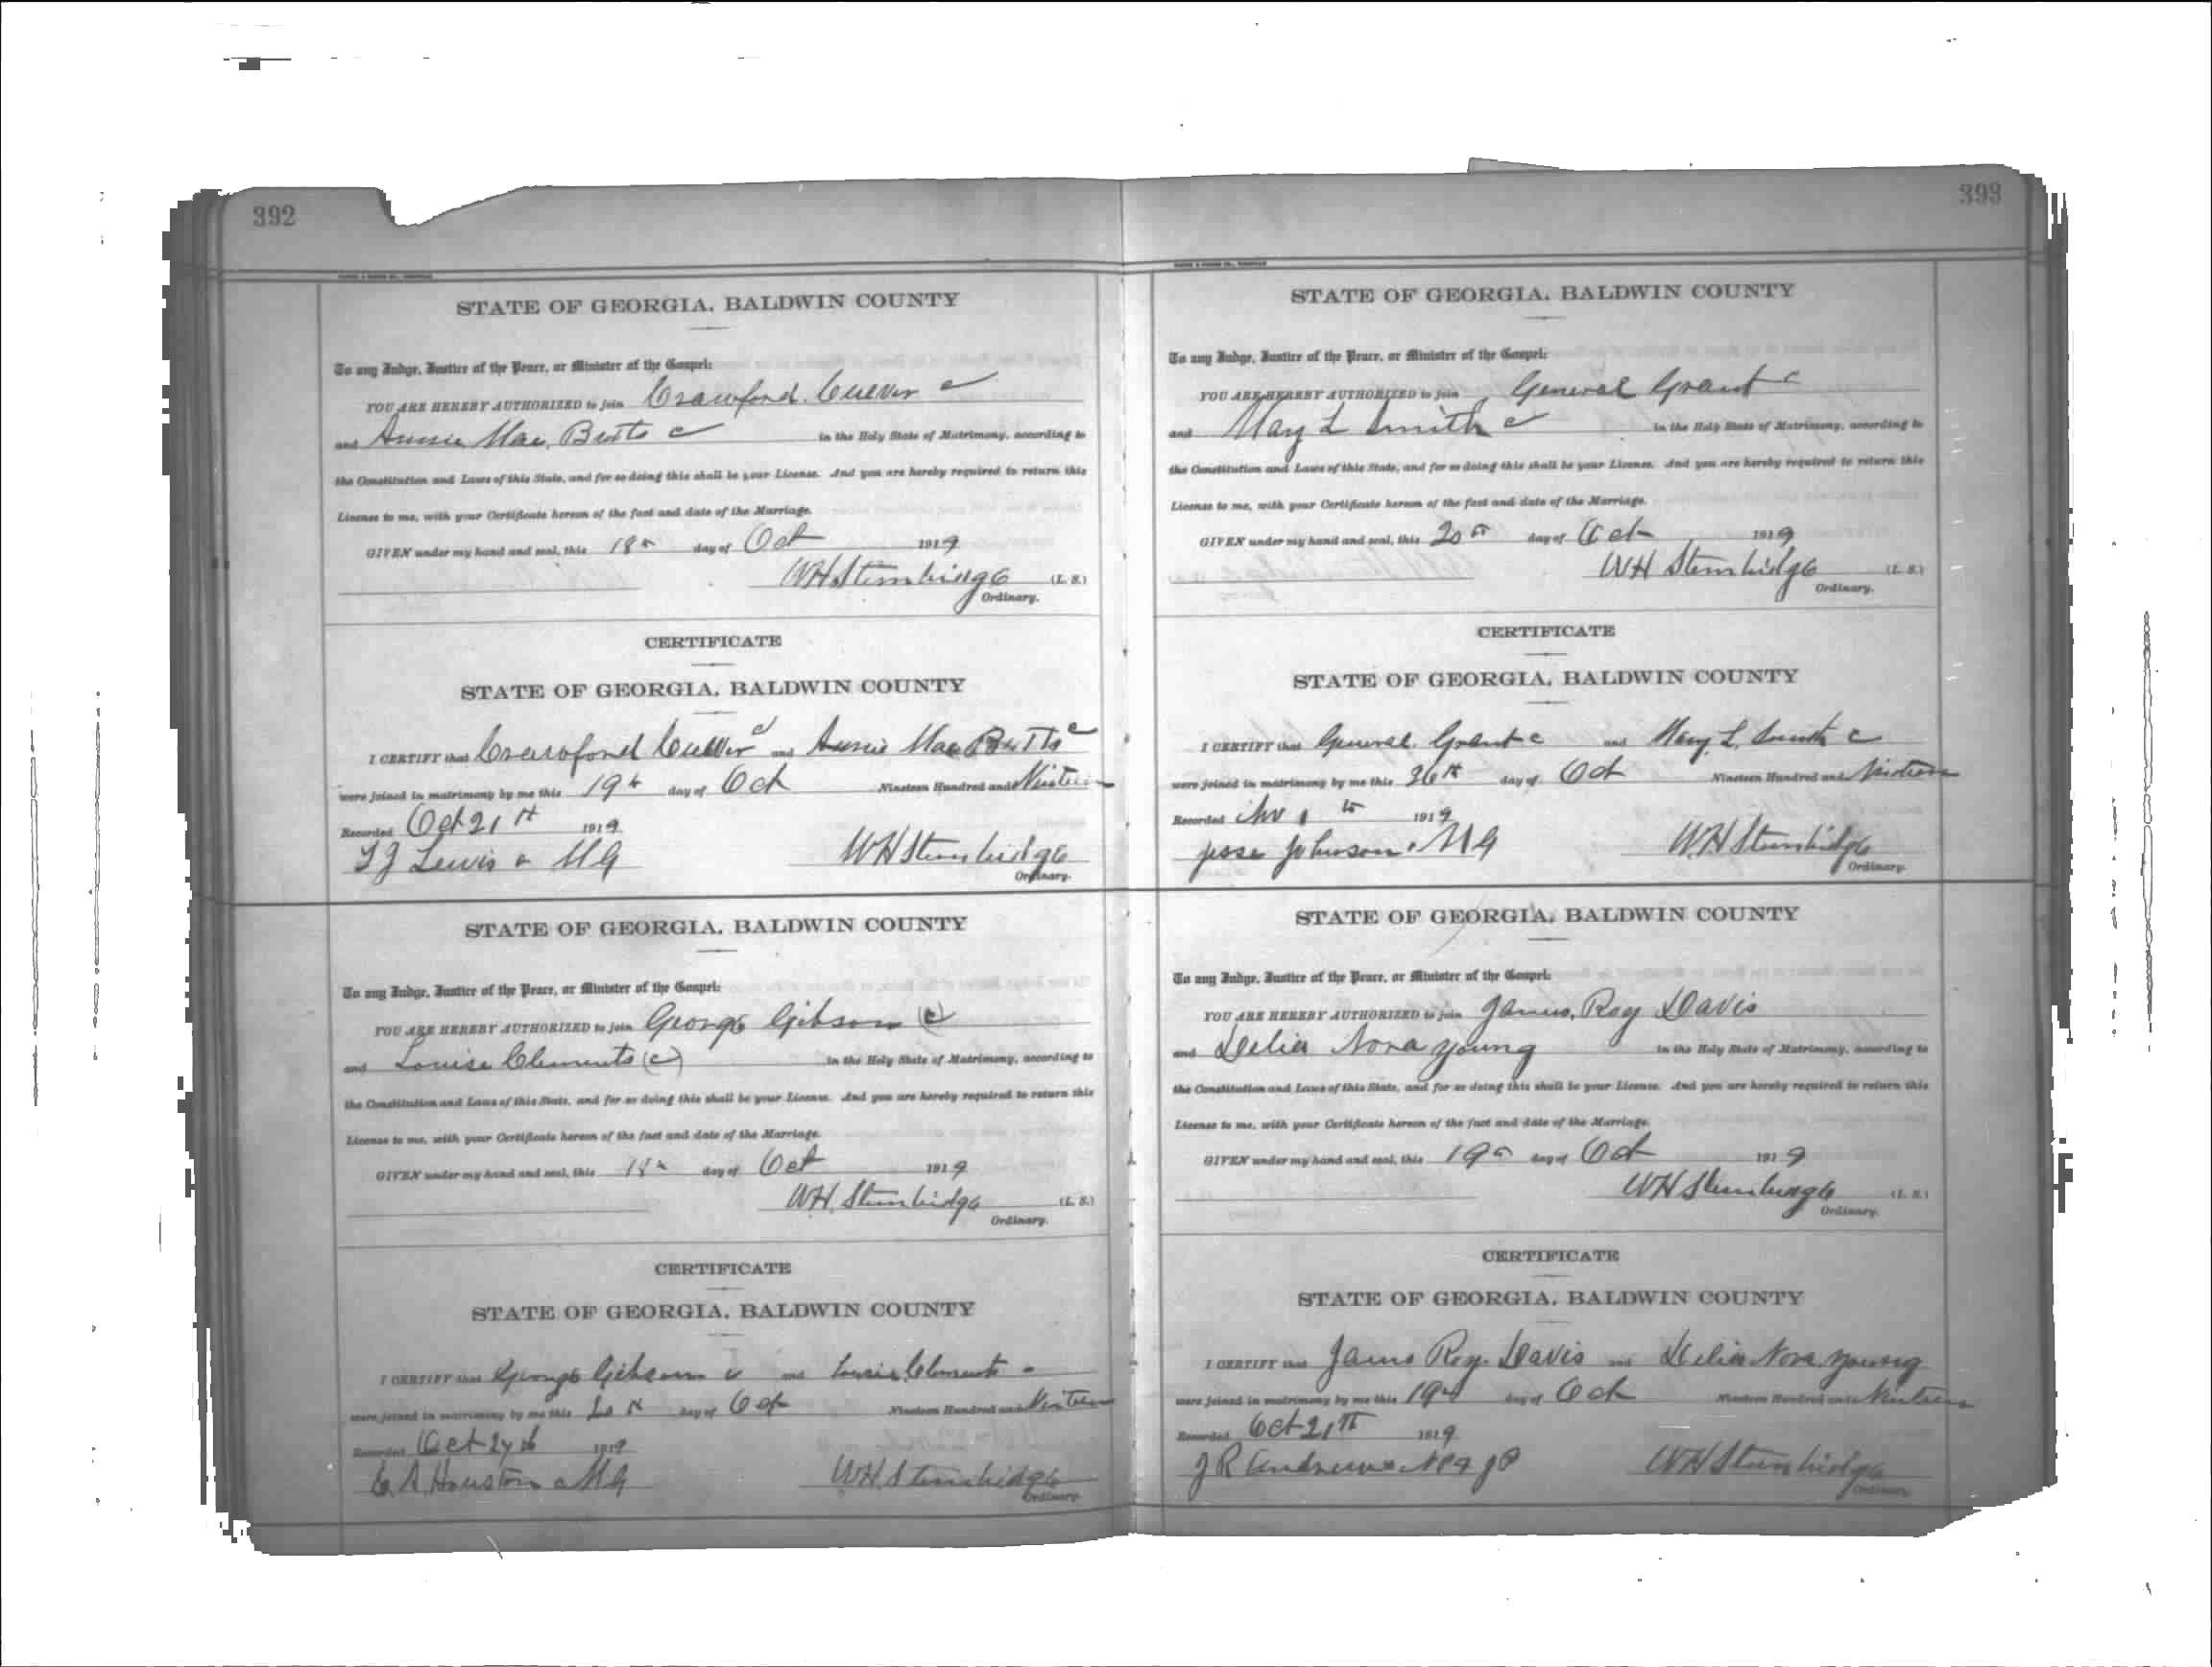 392
STATE OF GEORGIA, BALDWIN COUNTY
To any Judge, Justice of the Peace, or Minister of the Gospel:
YOU ARE HEREBY AUTHORIZED to join Crawford c
and Annie Mae Butts c in the Holy State of Matrimony, according to
the Constitution and Laws of this State, and for so doing this shall be your License. And you are hereby required to return this
License to me, with your Certificate hereon of the fact and date of the Marriage.
GIVEN under my hand and seal, this 18th day of Oct 1919
WH Stembridge (L. S.)
Ordinary.
CERTIFICATE
STATE OF GEORGIA, BALDWIN COUNTY
I CERTIFY that Crawford c and Annie Mae Butts c
were joined in matrimony by me this 19th day of Oct Nineteen Hundred and Nineteen
Recorded Oct 21st 1919
Lewis MG WH Stembridge
Ordinary.
STATE OF GEORGIA, BALDWIN COUNTY
To any Judge, Justice of the Peace, or Minister of the Gospel:
YOU ARE HEREBY AUTHORIZED to join George Gibson (c)
and Louise Clements (c) in the Holy State of Matrimony, according to
the Constitution and Laws of this State, and for so doing this shall be your License. And you are hereby required to return this
License to me, with your Certificate hereon of the fact and date of the Marriage.
GIVEN under my hand and seal, this 18th day of Oct 1919
WH Stembridge (L. S.)
Ordinary.
CERTIFICATE
STATE OF GEORGIA, BALDWIN COUNTY
I CERTIFY that George Gibson c and Louise Clements
were joined in matrimony by me this day of Oct Nineteen Hundred and Nineteen
Recorded Oct 27th 1919
Houston MG WH Stembridge
Ordinary.
393
STATE OF GEORGIA, BALDWIN COUNTY
To any Judge, Justice of the Peace, or Minister of the Gospel:
YOU ARE HEREBY AUTHORIZED to join General Grant c
and Mary L Smith c in the Holy State of Matrimony, according to
the Constitution and Laws of this State, and for so doing this shall be your License. And you are hereby required to return this
License to me, with your Certificate hereon of the fact and date of the Marriage.
GIVEN under my hand and seal, this 20th day of Oct 1919
WH Stembridge (L. S.)
Ordinary.
CERTIFICATE
STATE OF GEORGIA, BALDWIN COUNTY
I CERTIFY that General Grant c and Mary L. Smith c
were joined in matrimony by me this 26th day of Oct Nineteen Hundred and Nineteen
Recorded Nov 1919
Jesse Johnson MG WH Stembridge
Ordinary.
STATE OF GEORGIA, BALDWIN COUNTY
To any Judge, Justice of the Peace, or Minister of the Gospel:
YOU ARE HEREBY AUTHORIZED to join James Roy Davis
and Delia Nora Young in the Holy State of Matrimony, according to
the Constitution and Laws of this State, and for so doing this shall be your License. And you are hereby required to return this
License to me, with your Certificate hereon of the fact and date of the Marriage.
GIVEN under my hand and seal, this 19th day of Oct 1919
WH Stembridge (L. S.)
Ordinary.
CERTIFICATE
STATE OF GEORGIA, BALDWIN COUNTY
I CERTIFY that James Roy Davis and Delia Nora Young
were joined in matrimony by me this 19th day of Oct Nineteen Hundred and Nineteen
Recorded Oct 21st 1919
J R Andrews NP & JP WH Stembridge
Ordinary.